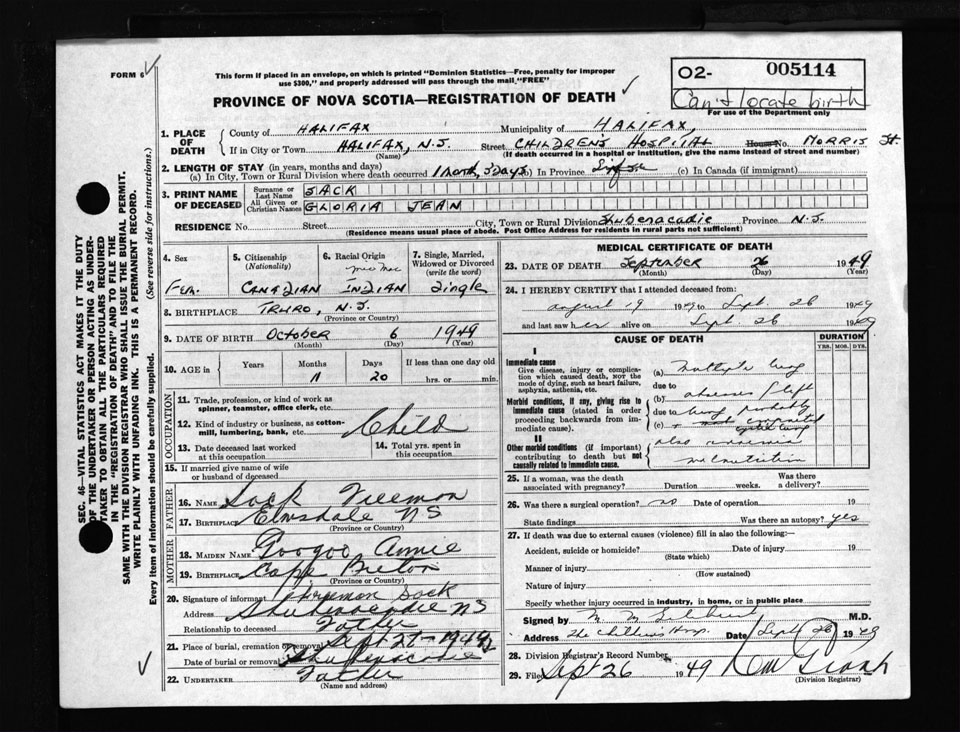 FORM 6
This form if placed in an envelope, on which is printed "Dominion Statistics—Free, penalty for improper
use $300," and properly addressed will pass through the mail, "FREE"
O2- 005114
Can't locate birth
For use of the Department only
PROVINCE OF NOVA SCOTIA—REGISTRATION OF DEATH
1. PLACE OF DEATH
County of HALIFAX Municipality of HALIFAX,
If in City or Town HALIFAX, N.S. Street CHILDREN'S HOSPITAL House No. MORRIS St.
(Name) (If death occurred in a hospital or institution, give the name instead of street and number)
2. LENGTH OF STAY (in years, months and days)
(a) In City, Town or Rural Division where death occurred 1 month, 3 days (b) In Province Life (c) In Canada (if immigrant)
3. PRINT NAME OF DECEASED
Surname or Last Name SACK
All Given or Christian Names GLORIA JEAN
RESIDENCE No. Street City, Town or Rural Division Shubenacadie Province N.S.
(Residence means usual place of abode. Post Office Address for residents in rural parts not sufficient)
4. Sex Fem.
5. Citizenship (Nationality) CANADIAN
6. Racial Origin Mic Mac INDIAN
7. Single, Married, Widowed or Divorced (write the word) Single
8. BIRTHPLACE TRURO, N.S.
(Province or Country)
9. DATE OF BIRTH October 6 1949
(Month) (Day) (Year)
10. AGE in Years Months 11 Days 20 If less than one day old hrs. or min.
OCCUPATION
11. Trade, profession, or kind of work as spinner, teamster, office clerk, etc.
12. Kind of industry or business, as cotton-mill, lumbering, bank, etc. Child
13. Date deceased last worked at this occupation
14. Total yrs. spent in this occupation
15. If married give name of wife or husband of deceased
FATHER
16. NAME Sack Freemon
17. BIRTHPLACE Elmsdale NS
(Province or Country)
MOTHER
18. MAIDEN NAME Googoo Annie
19. BIRTHPLACE Cape Breton
(Province or Country)
20. Signature of informant Freemon Sack
Address Shubenacadie NS
Relationship to deceased Father
21. Place of burial, cremation or removal Sept 27-1949
Date of burial or removal Shubenacadie
22. UNDERTAKER Father
(Name and address)
MEDICAL CERTIFICATE OF DEATH
23. DATE OF DEATH September 26 1949
(Month) (Day) (Year)
24. I HEREBY CERTIFY that I attended deceased from:
August 19 1949 to Sept. 26 1949
and last saw her alive on Sept. 26 1949
CAUSE OF DEATH DURATION
YRS. MOS. DYS.
I
Immediate cause
Give disease, injury or complication which caused death, NOT the mode of dying, such as heart failure, asphyxia, asthenia, etc.
(a)
due to
Morbid conditions, if any, giving rise to immediate cause (stated in order proceeding backwards from immediate cause).
(b) abscess of left
due to lung probably
(c)
II
Other morbid conditions (if important) contributing to death but not causally related to immediate cause.
also anaemia
malnutrition
25. If a woman, was the death associated with pregnancy? Duration weeks. Was there a delivery?
26. Was there a surgical operation? no Date of operation 19
State findings Was there an autopsy? yes
27. If death was due to external causes (violence) fill in also the following:—
Accident, suicide or homicide? Date of injury 19
(State which)
Manner of injury
(How sustained)
Nature of injury
Specify whether injury occurred in industry, in home, or in public place
Signed by M.D.
Address The Childrens Hosp. Date Sept 26 1949
28. Division Registrar's Record Number
29. Filed Sept 26 1949
(Division Registrar)
SEC. 46—VITAL STATISTICS ACT MAKES IT THE DUTY
OF THE UNDERTAKER OR PERSON ACTING AS UNDER-
TAKER TO OBTAIN ALL THE PARTICULARS REQUIRED
IN THE "REGISTRATION OF DEATH" AND TO FILE THE
SAME WITH THE DIVISION REGISTRAR WHO SHALL ISSUE THE BURIAL PERMIT.
WRITE PLAINLY WITH UNFADING INK. THIS IS A PERMANENT RECORD.
Every item of information should be carefully supplied. (See reverse side for instructions.)